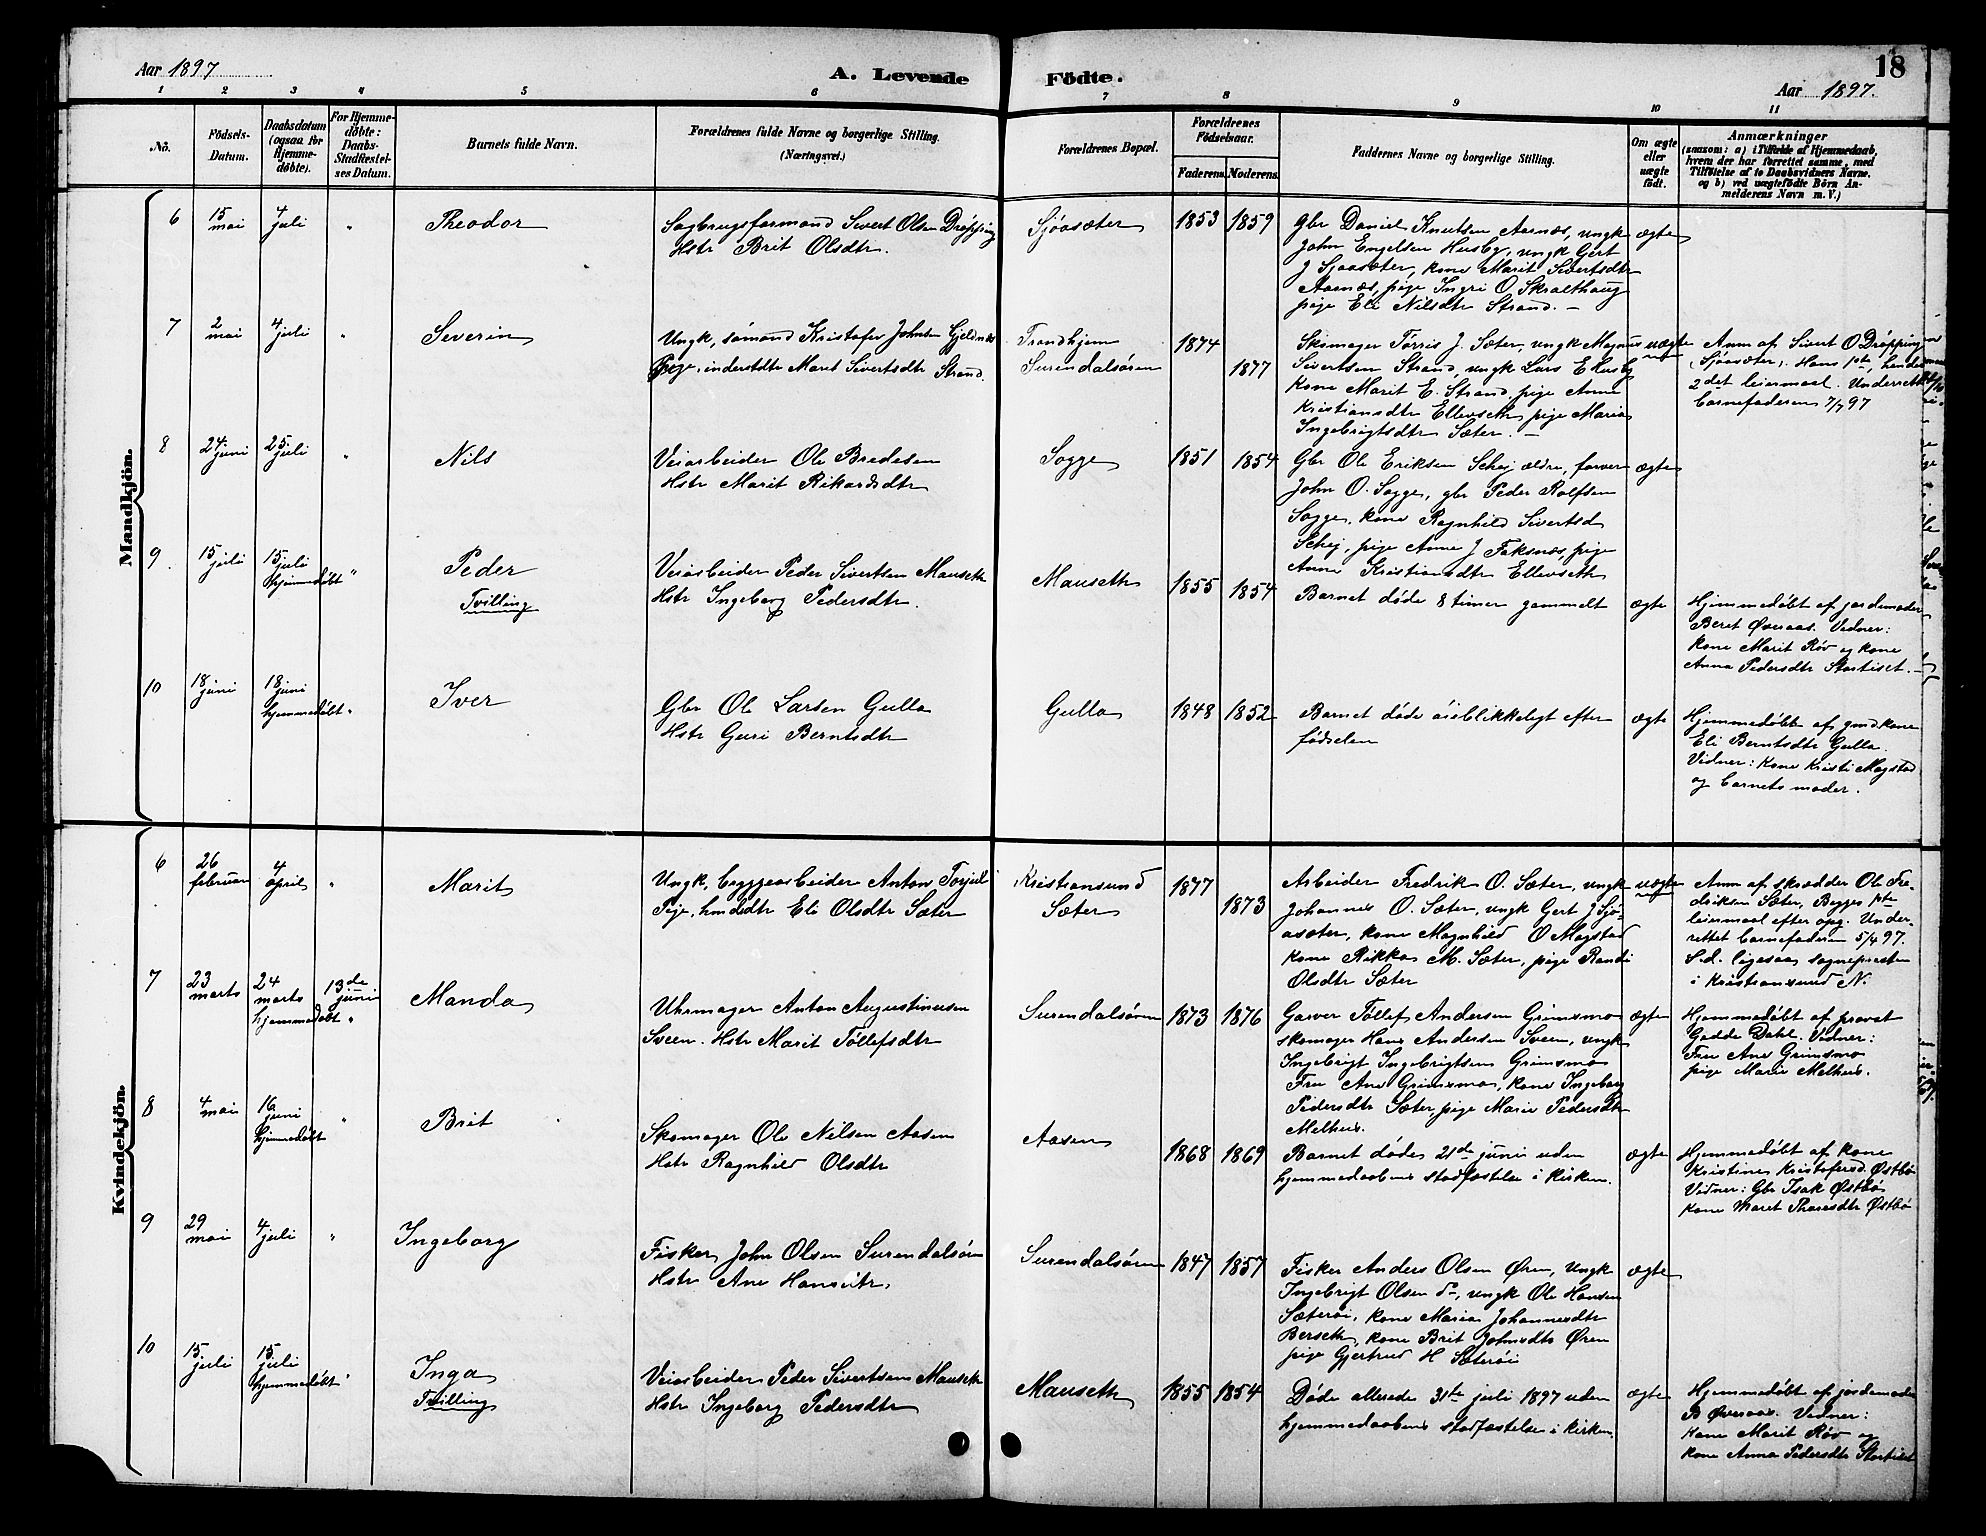 Aar 1897
A. Levende
Födte.
18
Aar 1897.
1 2 3 4 5 6 7 8 9 10 11
No.
Födsels-
Datum.
Daabsdatum
(ogsaa for
Hjemme-
døbte).
For Hjemme-
døbte:
Daabs-
Stadfæstel-
ses Datum.
Barnets fulde Navn.
Forældrenes fulde Navne og borgerlige Stilling.
(Næringsvei.)
Forældrenes Bopæl.
Forældrenes
Födselsaar.
Faderens. Moderens.
Faddernes Navne og borgerlige Stilling.
Om ægte
eller
uægte
födt.
Anmærkninger
(saasom: a) i Tilfælde af Hjemmedaab,
hvem der har forrettet samme, med
Tilföielse af to Daabsvidners Navne.
og b) ved uægtefödte Börn An-
melderens Navn m. V.)
Mandkjön.
6
15
mai
4
juli
"
Theodor
Sagbrugsformand Sivert Olsen Drøpping
Hstr Brit Olsdtr.
Sjøasæter
1853
1859
Gbr Daniel Knutsen Aarnæs, ungk
John Engelsen Husby, ungk Gert
J Sjøasæter, kone Marit Sivertsdtr
Aarnæs, pige Ingri O Skralthaug
pige Eli Nilsdtr Strand. —
ægte
7
2
mai
4
juli
"
Severin
Ungk, sømand Kristofer Johnsen Gjeldnes
Pige, inderstdtr Maret Sivertsdtr Strand.
Trondhjem
Surendalsøren
1874
1877
Skomager Torris J. Sæter, ungk Magnus
Sivertsen Strand, ungk Lars E Husby
kone Marit E. Strand, pige Anne
Kristiansdtr Ellevseth, pige Maria
Ingebrigtsdtr Sæter. —
uægte
Anm af Sivert O Drøpping
Sjøasæter. Hans 1ste, hendes
2det leiermaal. Underrettet
barnefaderen 7/7 97
8
24
juni
25
juli
"
Nils
Veiarbeider Ole Bredesen
Hstr Marit Rikardsdtr
Sogge
1851
1854
Gbr Ole Eriksen Schej ældre, farver
John O. Sogge, gbr Peder Rolfsen
Sogge, kone Ragnhild Sivertsd
Schej, pige Anne J Faksnæs, pige
Anne Kristiansdtr Ellevseth
ægte
9
15
juli
15
juli
hjemmedøbt
"
Peder
Tvilling
Veiarbeider Peder Sivertsen Mauseth
Hstr Ingeborg Pedersdtr.
Mauseth
1855
1854
Barnet døde 8 timer gammelt
ægte
Hjemmedøbt af jordemoder
Beret Øveraas. Vidner:
kone Marit Røv og kone
Anna Pedersdtr Stortiset. —
10
18
juni
18
juni
hjemmedøbt
"
Iver
Gbr Ole Larsen Gulla
Hstr Guri Berntsdtr
Gulla
1848
1852
Barnet døde øieblikkeligt efter
fødselen
ægte
Hjemmedøbt af gmdkone
Eli Berntsdtr Gulla.
Vidner: Kone Kristi Mogstad
og barnets moder.
Kvindekjön.
6
26
februar
4
april
"
Marit
Ungk, byggearbeider Anton Torjul
Pige, hmdsdtr Eli Olsdtr Sæter
Kristiansund
Sæter
1877
1873
Arbeider Fredrik O. Sæter, ungk
Johannes O. Sæter, ungk Gert J Sjø-
asæter, kone Magnhild O Mogstad
kone Rikka M. Sæter, pige Randi
Olsdtr Sæter
uægte
Anm af skrædder Ole Fre-
driksen Sæter, Begges 1ste
leiermaal efter opg. Under-
rettet barnefaderen 5/4 97.
S.d. ligesaa sognepresten
i Kristiansund N.
7
23
marts
24
marts
hjemmedøbt
13de
juni
"
Manda
Uhrmager Anton Augustinusen
Sveen. Hstr Marit Tøllefsdtr
Surendalsøren
1873
1876
Garver Tøllef Andersen Grimsmo
skomager Hans Andersen Sveen, ungk
Ingebrigt Ingebrigtsen Grimsmo
Fru Ane Grimsmo, kone Ingeborg
Pedersdtr Sæter, pige Marie Pedersdtr
Melhus.
ægte
Hjemmedøbt af provst
Gødde Dahl. Vidner:
Fru Ane Grimsmo
pige Marie Melhus.
8
4
mai
16
juni
hjemmedøbt
"
Brit
Skomager Ole Nilsen Aasen
Hstr Ragnhild Olsdtr
Aasen
1868
1869
Barnet døde 21de juni uden
hjemmedaabens stadfæstelse i kirken.
ægte
Hjemmedøbt af kone
Kristine Kristofersd. Østbø
Vidner: Gbr Isak Østbø
kone Maret Tharesdtr Østbø
9
29
mai
4
juli
"
Ingeborg
Fisker John Olsen Surendalsøren
Hstr Ane Hansdtr.
Surendalsøren
1847
1857
Fisker Anders Olsen Øren, ungk
Ingebrigt Olsen do, ungk Ole Hansen
Sæterøi, kone Maria Johannesdtr
Berseth, kone Brit Johnsdtr Øren
pige Gjertrud H Sæterøi
ægte
10
15
juli
15
juli
hjemmedøbt
"
Inga
Tvilling
Veiarbeider Peder Sivertsen Mauseth
Hstr Ingeborg Pedersdtr
Mauseth
1855
1854
Døde allerede 31te juli 1897 uden
hjemmedaabens stadfæstelse i kirken.
ægte
Hjemmedøbt af jordemoder
B Øveraas. Vidner:
Kone Marit Røv og
kone Anna Pedersdtr Stortiset